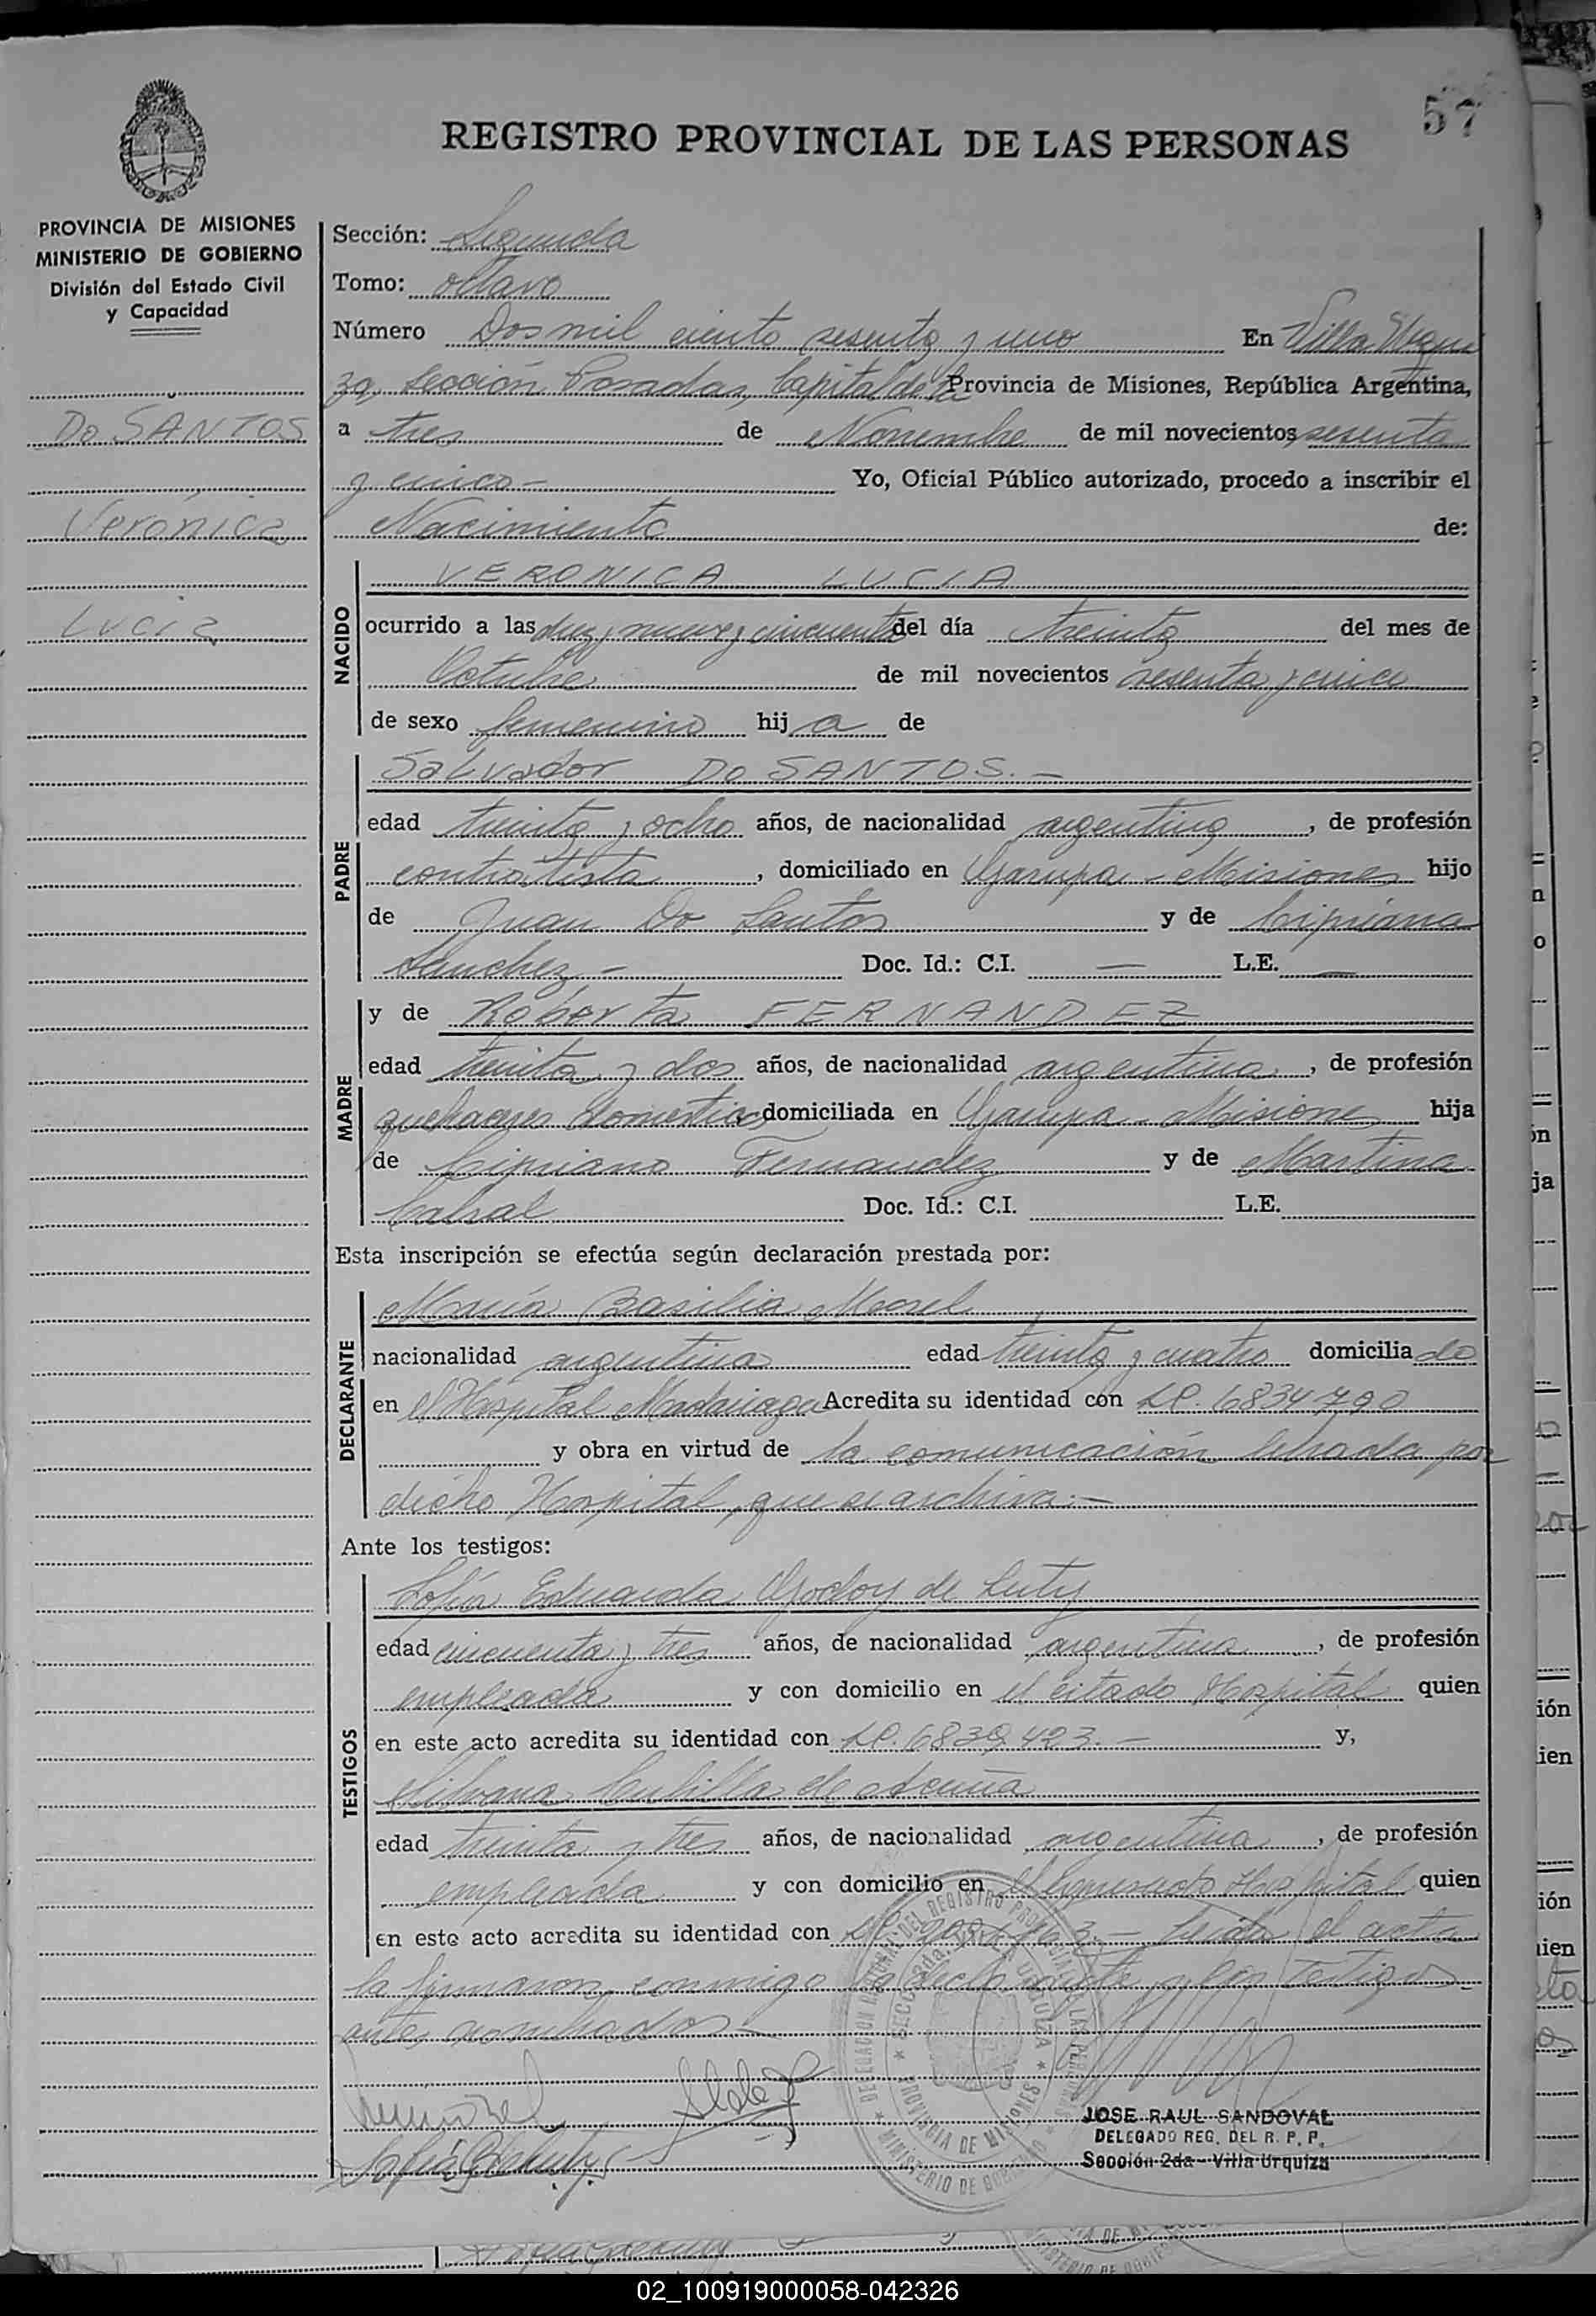 57
REGISTRO PROVINCIAL DE LAS PERSONAS
PROVINCIA DE MISIONES
MINISTERIO DE GOBIERNO
División del Estado Civil
y Capacidad
Do SANTOS
Verónica
Lucia
Sección: Segunda
Tomo: octavo
Número Dos mil ciento sesenta y uno En Villa Urqui
za, Sección Posadas, Capital de la Provincia de Misiones, República Argentina,
a tres de Noviembre de mil novecientos sesenta
y cinco - Yo, Oficial Público autorizado, procedo a inscribir el
Nacimiento de:
NACIDO
VERONICA LUCIA
ocurrido a las diez y nueve y cincuenta del día treinta del mes de
Octubre de mil novecientos sesenta y cinco
de sexo femenino hija de
PADRE
Salvador Do SANTOS. -
edad treinta y ocho años, de nacionalidad argentina, de profesión
contratista, domiciliado en Garupa - Misiones hijo
de Juan Do Santos y de Cipriana
Sanchez - Doc. Id.: C.I. — L.E. —
MADRE
y de Roberta FERNANDEZ
edad treinta y dos años, de nacionalidad argentina, de profesión
quehaceres domesticos domiciliada en Garupa - Misiones hija
de Cipriano Fernandez y de Martina
Cabral Doc. Id.: C.I. L.E.
Esta inscripción se efectúa según declaración prestada por:
DECLARANTE
María Basilia Morel
nacionalidad argentina edad treinta y cuatro domiciliado
en el Hospital Madariaga Acredita su identidad con LC. 6834790
y obra en virtud de la comunicación librada por
dicho Hospital, que se archiva. -
Ante los testigos:
TESTIGOS
Sofía Eduarda Godoy de Luty
edad cincuenta y tres años, de nacionalidad argentina, de profesión
empleada y con domicilio en el citado Hospital quien
en este acto acredita su identidad con LC. 6839423. - y,
Silvana de Acuña
edad treinta y tres años, de nacionalidad argentina, de profesión
empleada y con domicilio en el Hospital quien
en este acto acredita su identidad con LC. - Leida el acta
la firmaron conmigo la declarante y los testigos
antes nombrados -
JOSE RAUL SANDOVAL
DELEGADO REG. DEL R. P. P.
Sección 2da - Villa Urquiza
02_100919000058-042326